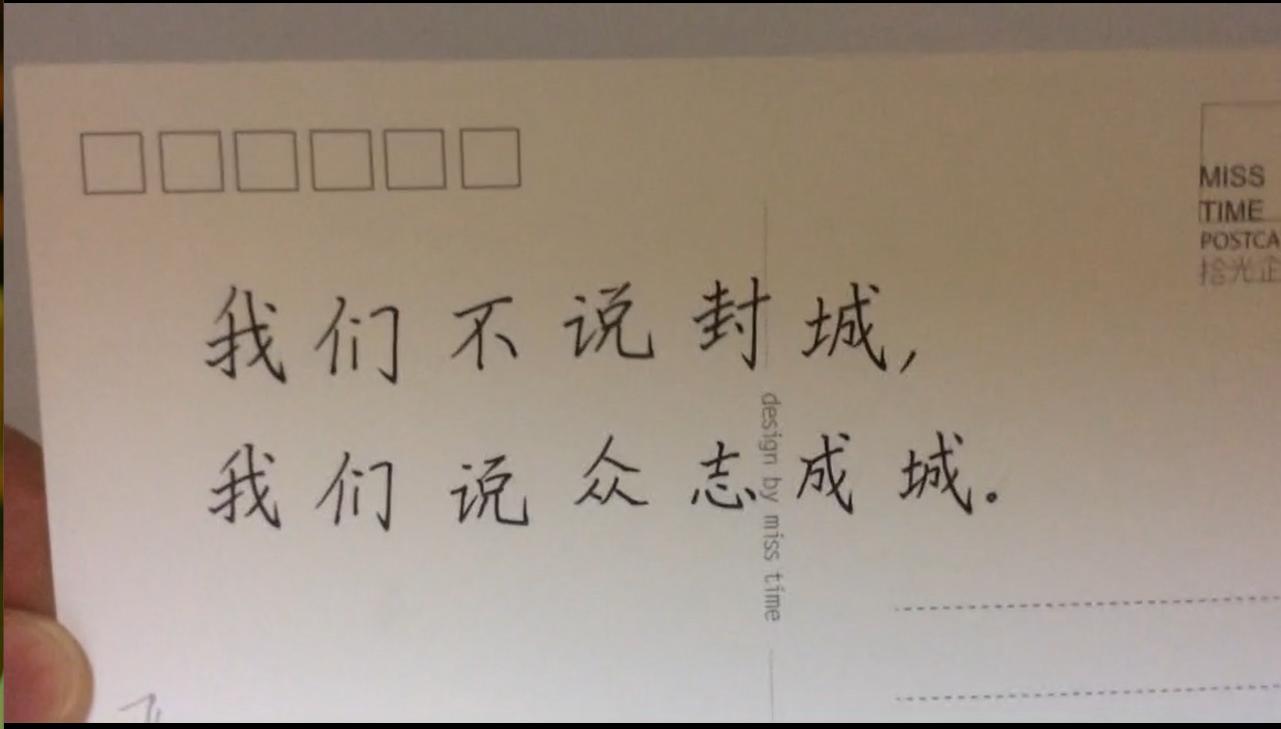 MISS
TIME
POSTCA
拾光企
我们不说封城，
我们说众志成城。
design by miss time